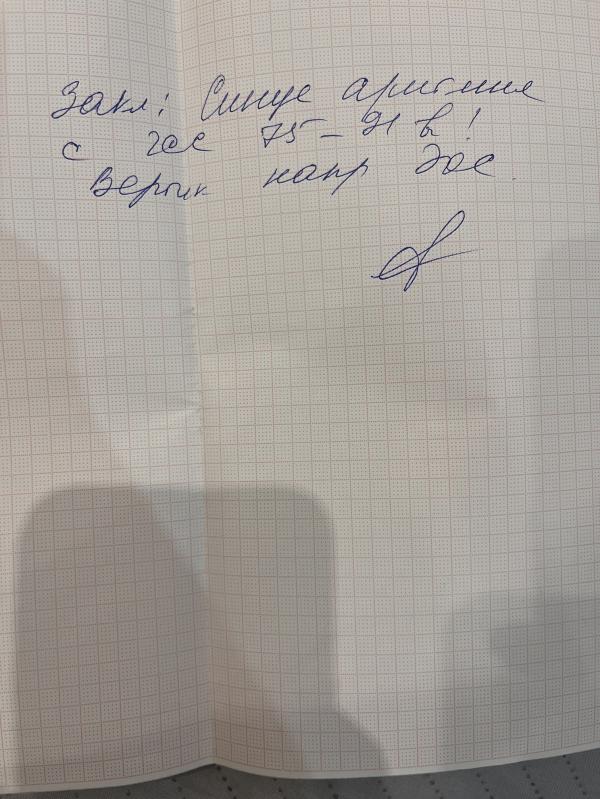 Закл: Синус аритмия
с чсс 75-91 в!
Вертик напр Эос.